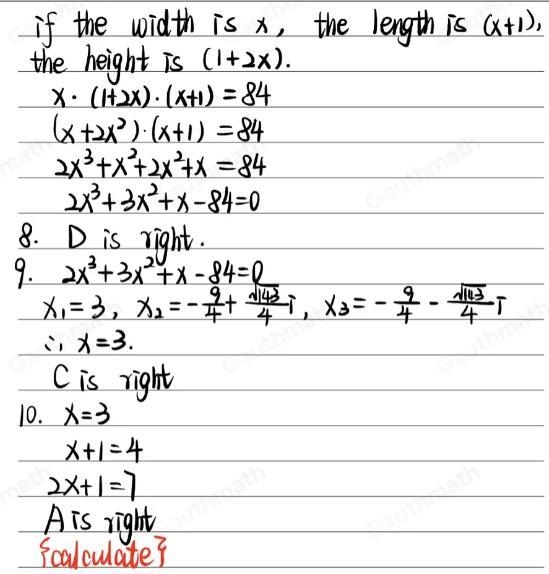 if the width is x, the length is (x+1),
the height is (1+2x).
x·(1+2x)·(x+1)=84
(x+2x²)·(x+1)=84
2x³+x²+2x²+x=84
2x³+3x²+x-84=0
8. D is right.
9. 2x³+3x²+x-84=0
x₁=3, x₂=-9/4+√143/4 i, x₃=-9/4-√143/4 i
∴ x=3.
C is right
10. x=3
x+1=4
2x+1=7
A is right
{calculate}